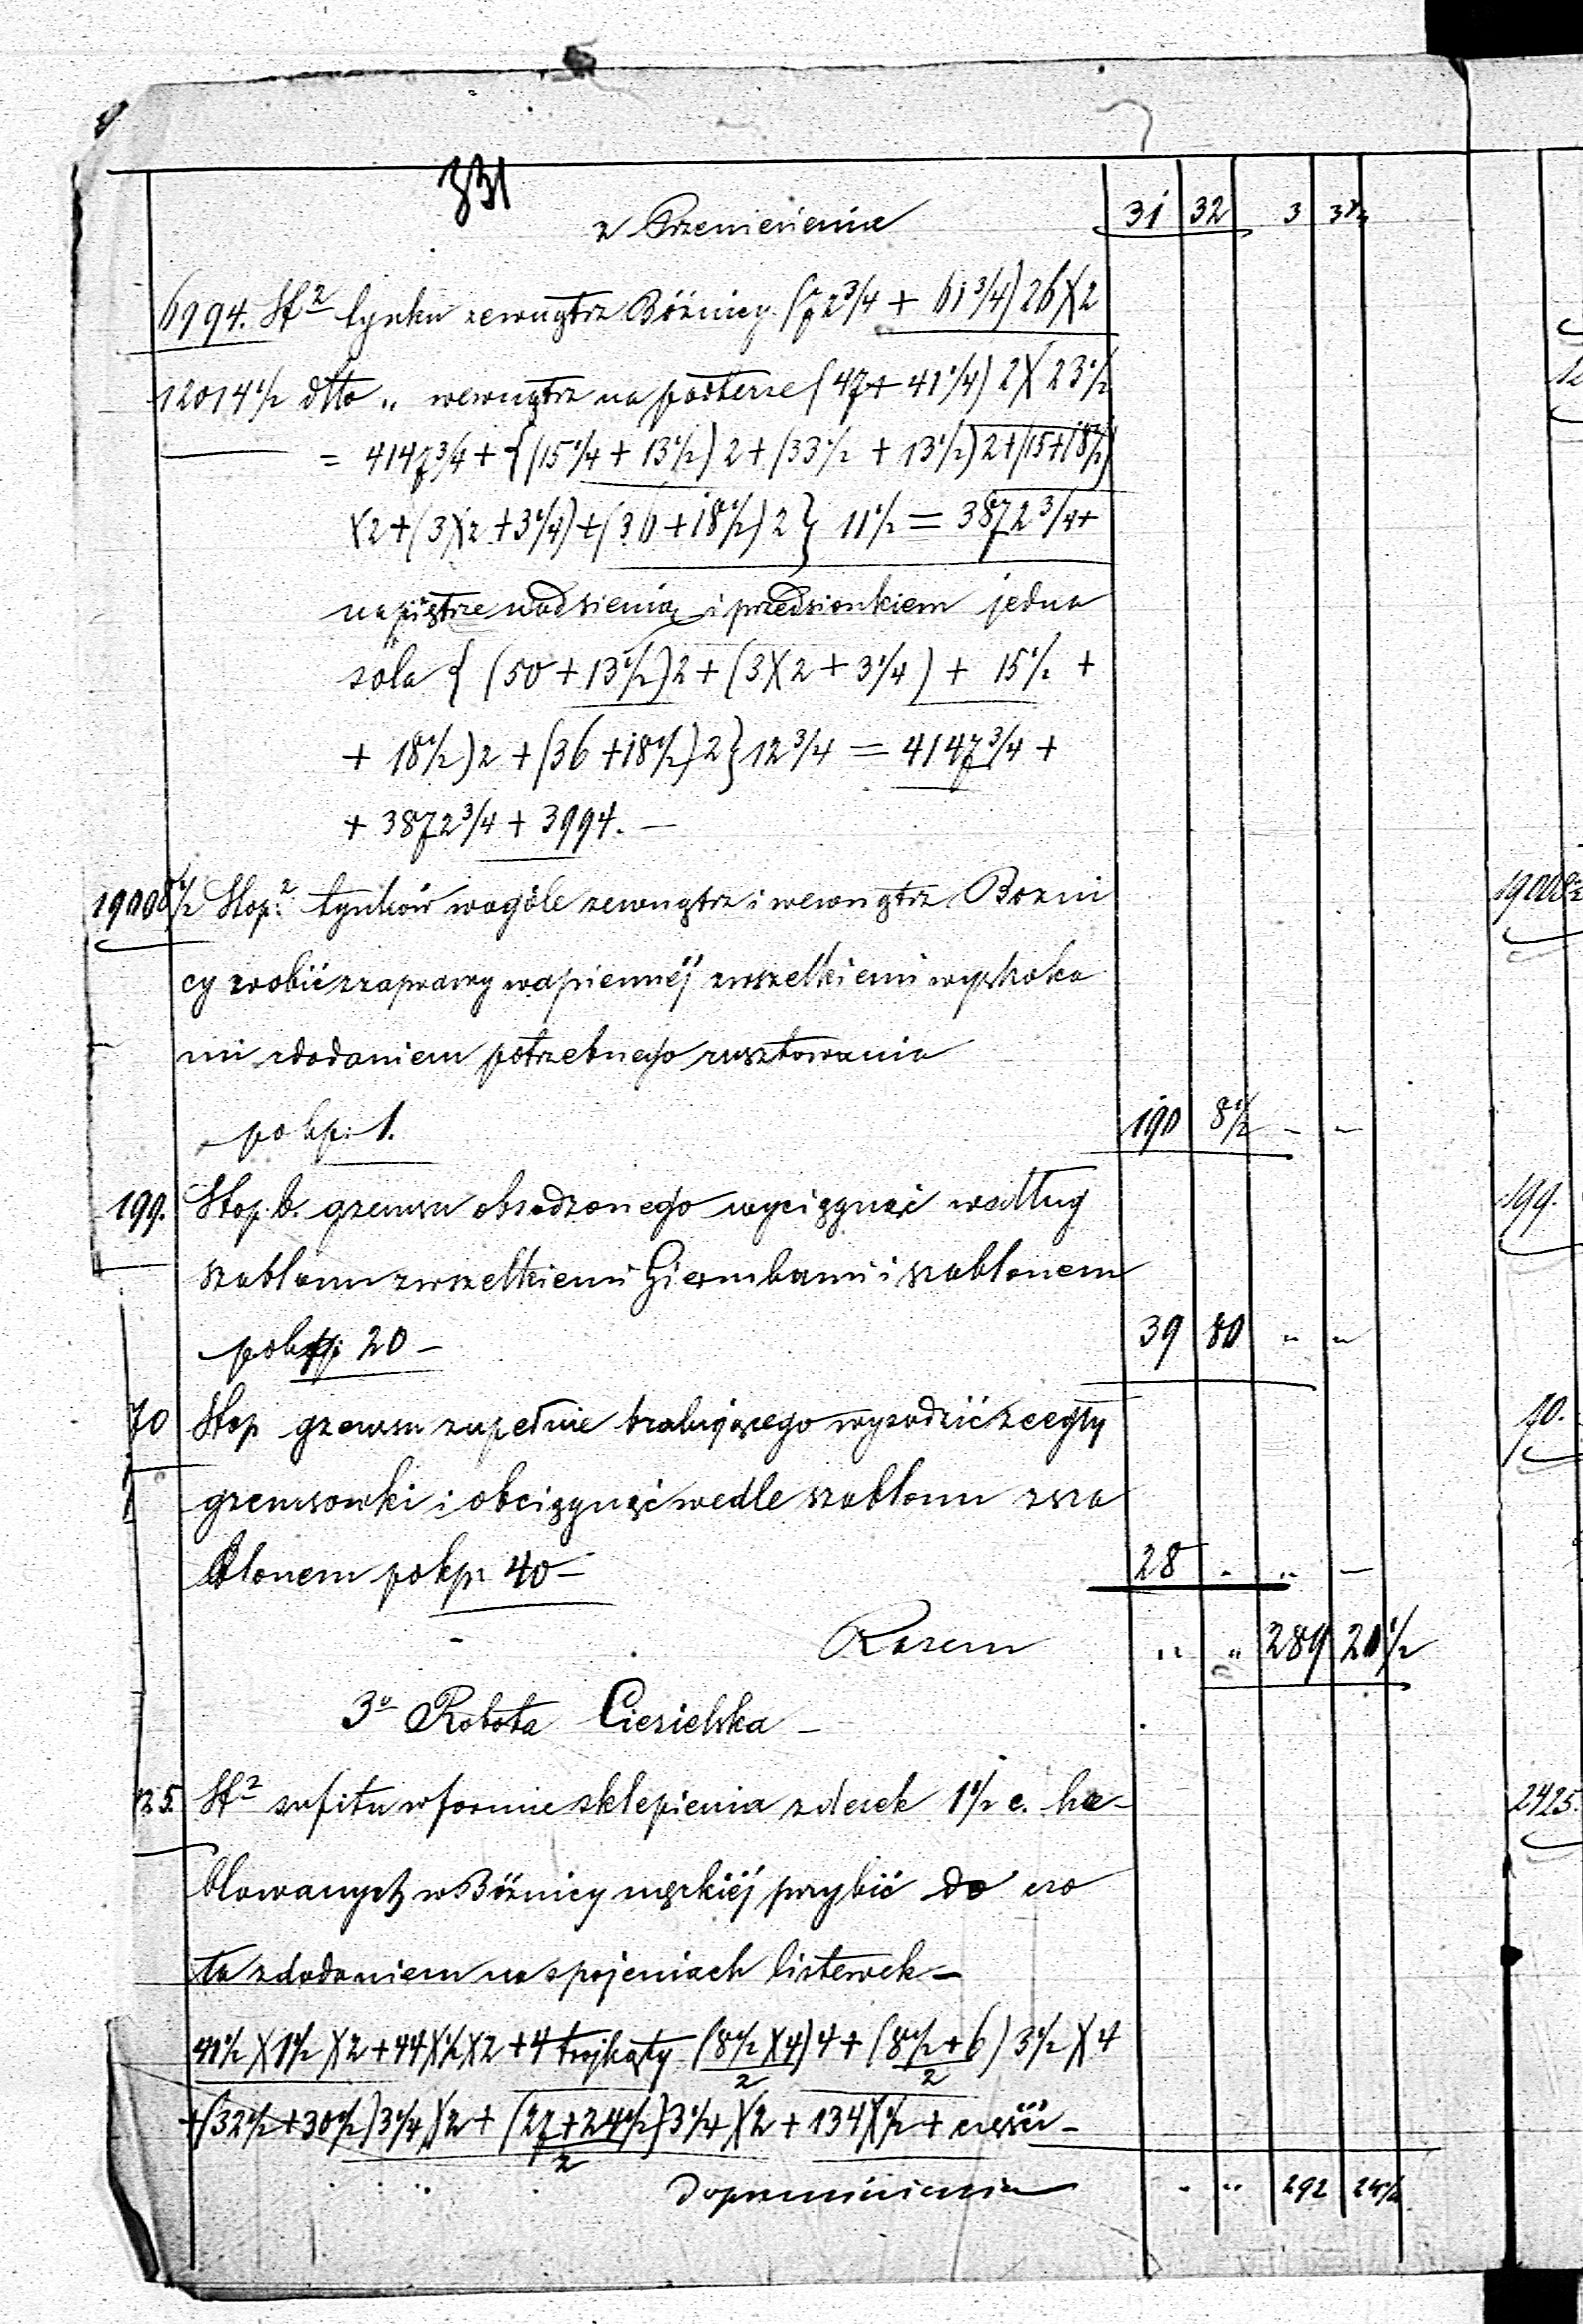 331
z Przeniesienia 31 32 3 3 1/2
6994. St² tynku zewnątrz Bóżnicy (72 3/4 + 61 3/4) 26 X 2
12014 1/2 dtto „ wewnątrz na parterze (47 + 41 1/4) 2 X 23 1/2
= 4147 3/4 + {(15 1/4 + 13 1/2) 2 + (33 1/2 + 13 1/2) 2 + (15 + 18 1/2)
X 2 + (3 X 2 + 3 1/4) + (36 + 18 1/2) 2} 11 1/2 = 3872 3/4 +
na piętrze nad sienią i przedsionkiem jedna
sala { (50 + 13 1/2) 2 + (3 X 2 + 3 1/4) + 15 1/2 +
+ 18 1/2) 2 + (36 + 18 1/2) 2} 12 3/4 = 4147 3/4 +
+ 3872 3/4 + 3994. —
19008 1/2 Stop.² tynków wogóle zewnątrz i wewnątrz Bozni
cy zrobić z zaprawy wapiennéj z wszelkiemi wyskoka
mi z dodaniem potrzebnego rusztowania
po kp: 1. 190 8 1/2 - -
199. Stop. b. gzemsu obsadzonego wyciągnąć według
szablonu z wszelkiemi Gierunkami i szablonem
po kp: 20 – 39 80 „ „
70 Stop gzemsu zupełnie brakującego wysadzić z cegły
gzemsowki i obciągnąć wedle szablonu z sza
blonem po kp: 40 – 28 „ „ —
Razem „ „ 289 20 1/2
3º Robota Ciesielska –
25. St² sufitu w formie sklepienia z desek 1 1/2 c. he-
blowanych w Bóżnicy męskiéj przybić do
ta z dodaniem na spojeniach listewek –
41 1/2 X 1 1/2 X 2 + 44 X 1/2 X 2 + 4 trójkąty (8 1/2 X 4) 4 + (8 1/2 + 6) 3 1/2 X 4
2 2
+ (32 1/2 + 30 1/2) 3 1/4 X 2 + (27 + 24 1/2) 3 1/4 X 2 + 134 X 1/2 + części –
2
Do przeniesienia „ „ 292 24 1/2
19008 1/2
199.
70.
2425.